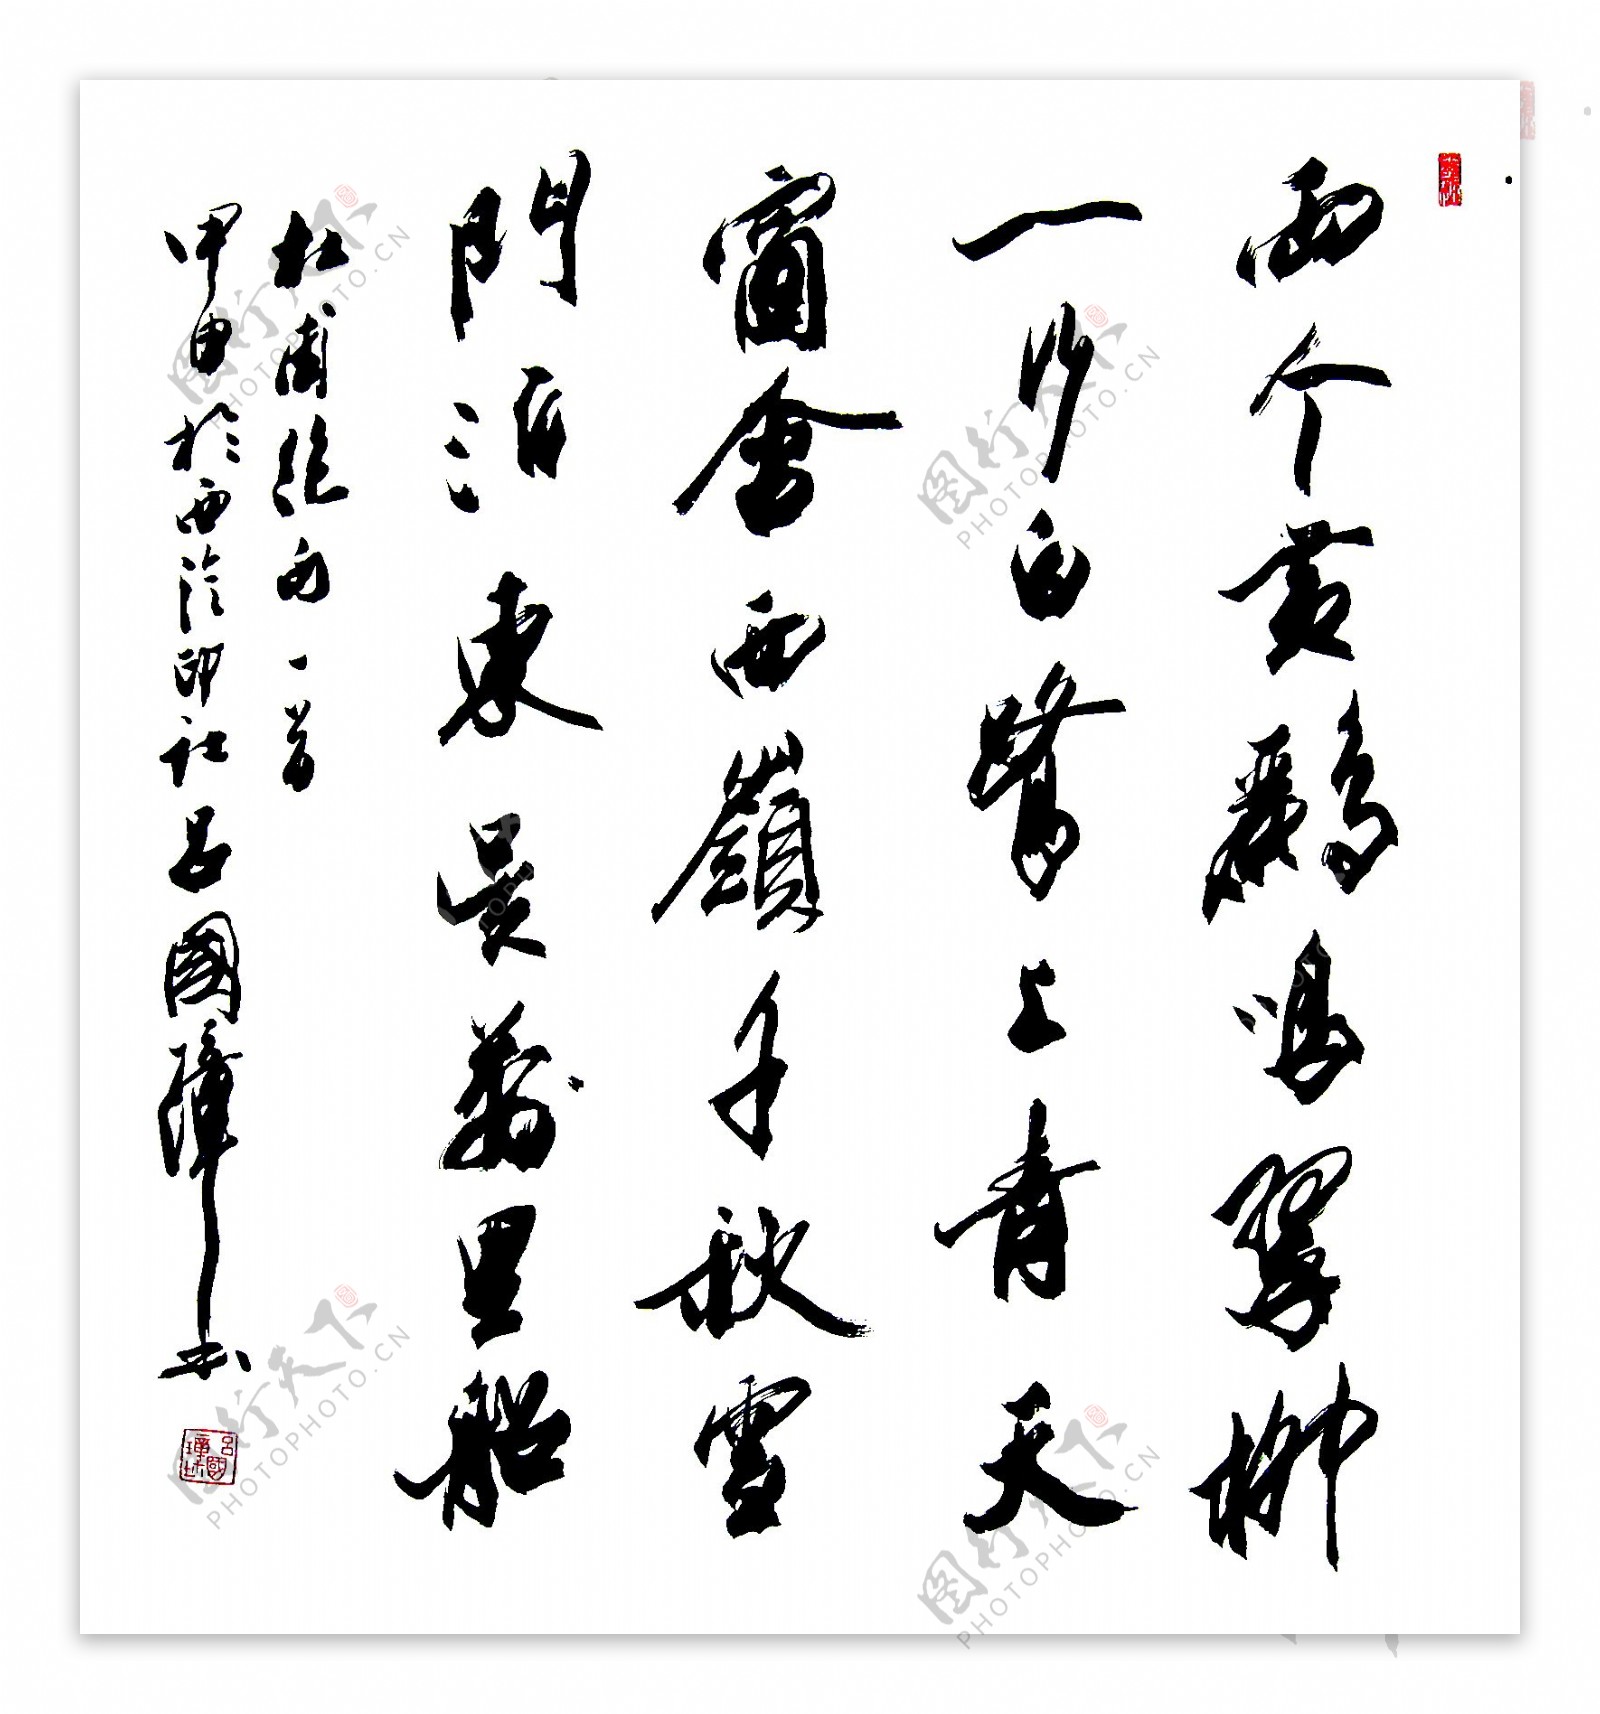 兩个黄鸝鳴翠柳
一行白鷺上青天
窗含西嶺千秋雪
門泊東吴萬里船
杜甫絶句一首
甲申於西泠印社呂國璋书
呂國璋
图行天下
PHOTOPHOTO.CN
图行天下
PHOTOPHOTO.CN
图行天下
PHOTOPHOTO.CN
图行天下
PHOTOPHOTO.CN